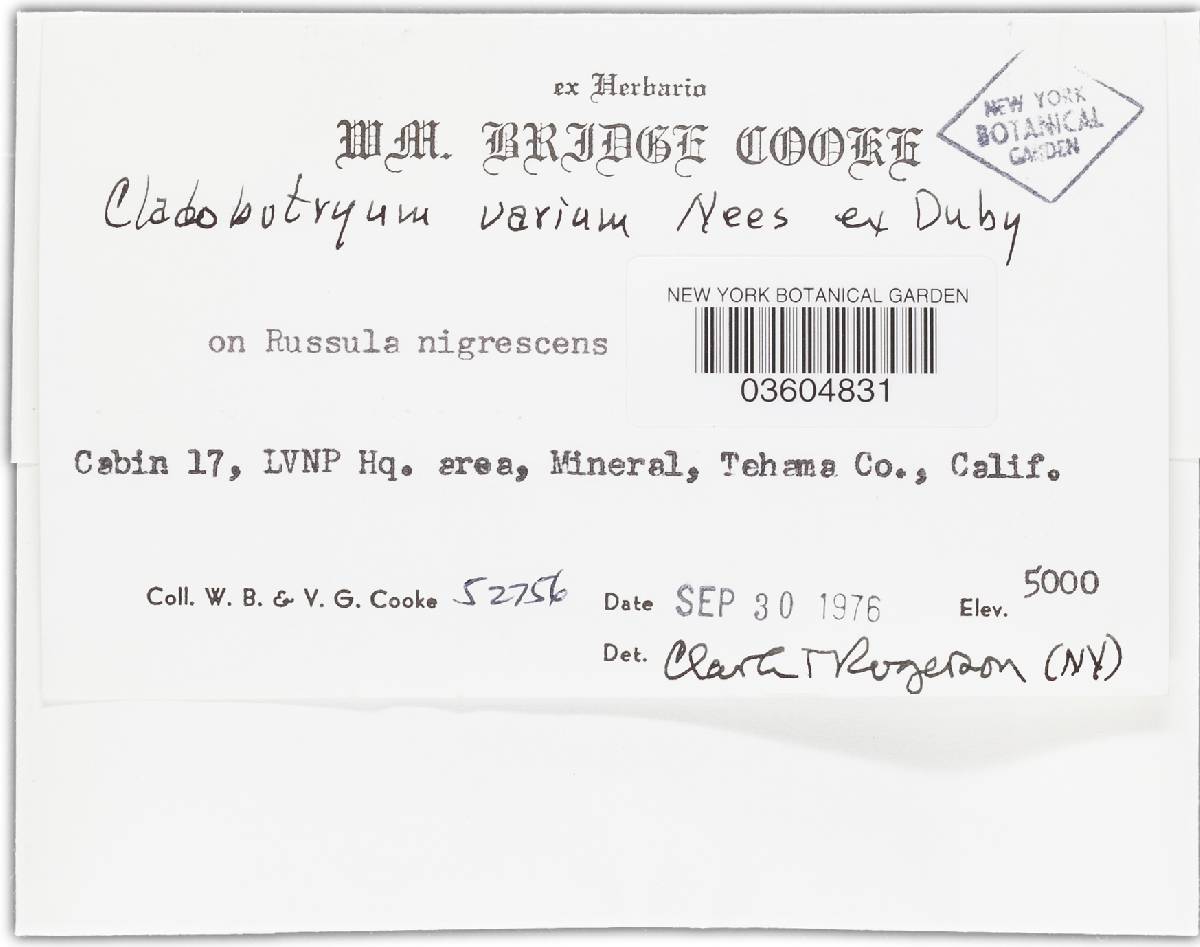 ex Herbario
WM. BRIDGE COOKE
NEW YORK
BOTANICAL
GARDEN
Cladobotryum varium Nees ex Duby
NEW YORK BOTANICAL GARDEN
03604831
on Russula nigrescens
Cabin 17, LVNP Hq. area, Mineral, Tehama Co., Calif.
Coll. W. B. & V. G. Cooke 52756 Date SEP 30 1976 Elev. 5000
Det. Clark T Rogerson (NY)